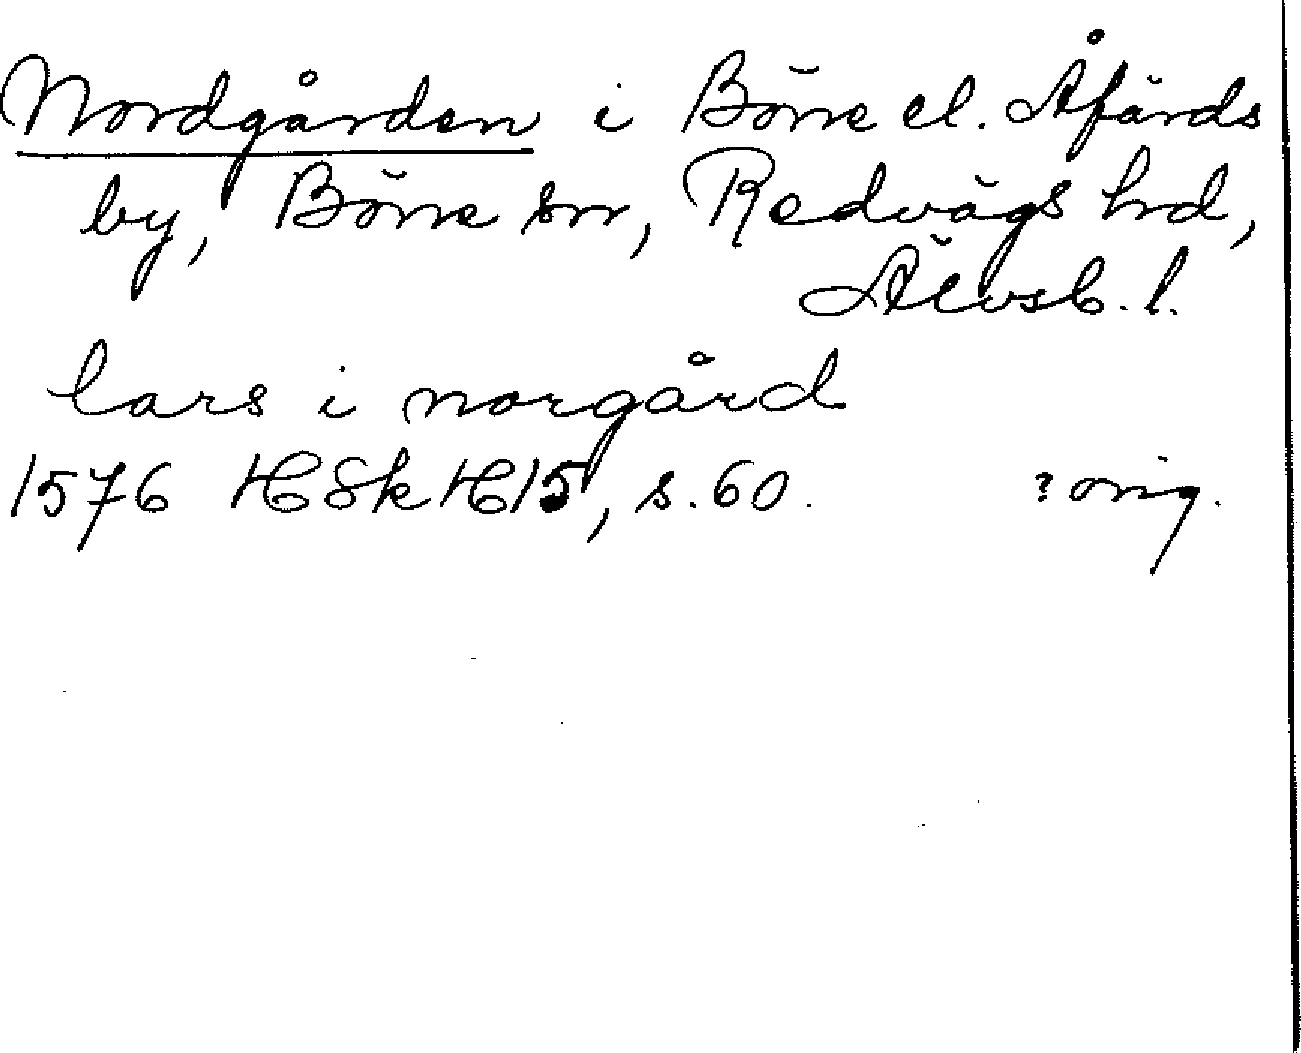 Nordgården i Börre el. Åfärds
by, Börre sn, Redvägs hrd,
Älvsb. l.
lars i norgård
1576 HSkH15, s. 60. ? orig.